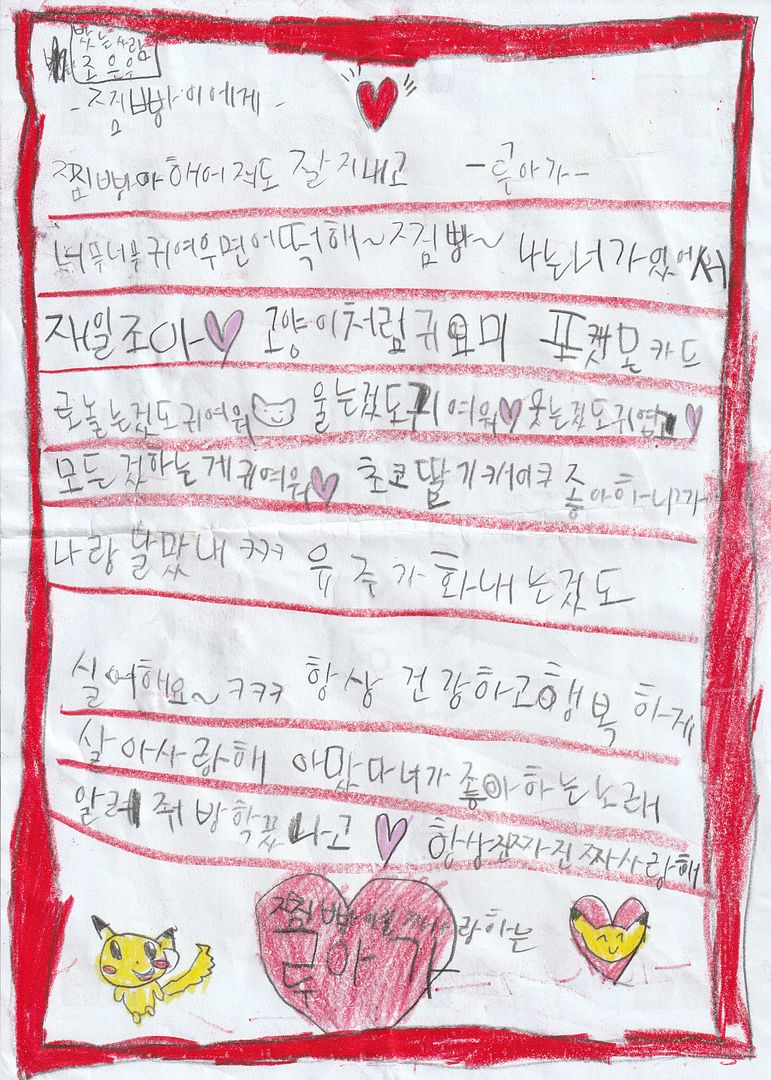 받는사람
조은우
-찜빵이에게-
찜빵아 해어져도 잘 지내고 -루아가-
너무너무귀여우면어떡해~찜빵~ 나는너가있어서
재일조아 고양이처럼귀요미 포캣몬카드
로놀는것도귀여워 울는것도귀여워 웃는것도귀엽고
모든것하는게귀여워 초코딸기케이크 좋아하니까
나랑달맜내ㅋㅋㅋ 유주가화내는것도
실여해요~ㅋㅋㅋ 항상건강하고행복하게
살아사랑해 아맜다너가좋아하는노래
알려줘방학끝나고 항상진짜진짜사랑해
찜빵이를 사랑하는
루아가